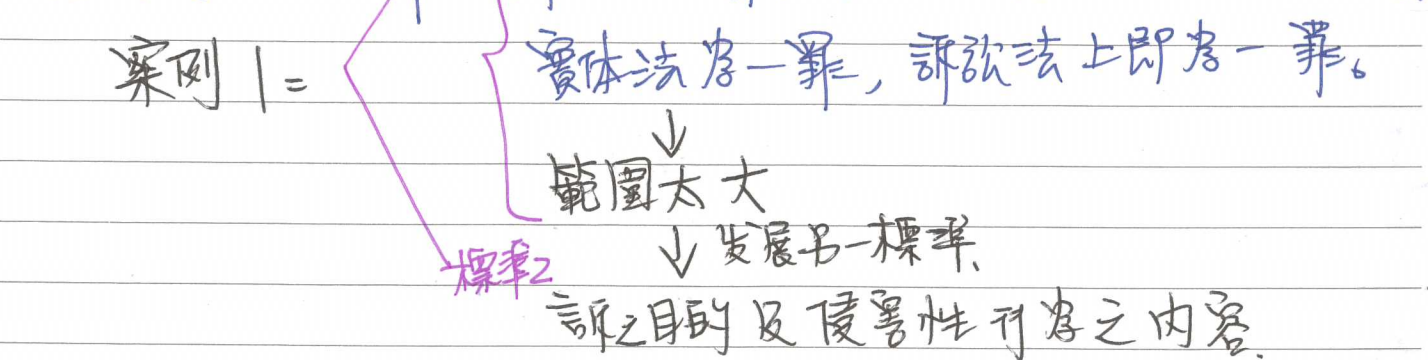 案例1=
實体法為一罪,訴訟法上即為一罪。
↓
範圍太大
↓发展另一標準.
標準2
訴之目的及侵害性行為之內容.